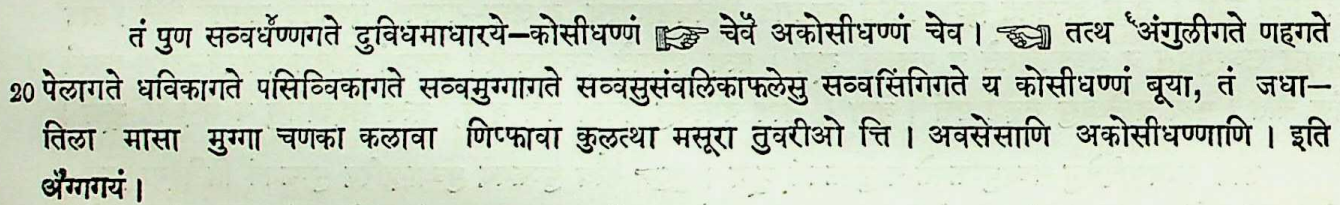 तं पुण सव्वधण्णगते दुविधमाधारये–कोसीधण्णं ☞ चेव अकोसीधण्णं चेव । ☜ तत्थ अंगुलीगते णहगते
20 पेलागते थविकागते पसिव्विकागते सव्वमुग्गागते सव्वसुसंवलिकाफलेसु सव्वसिंगिगते य कोसीधण्णं बूया, तं जधा–
तिला मासा मुग्गा चणका कलावा णिप्फावा कुलत्था मसूरा तुवरीओ त्ति । अवसेसाणि अकोसीधण्णाणि । इति